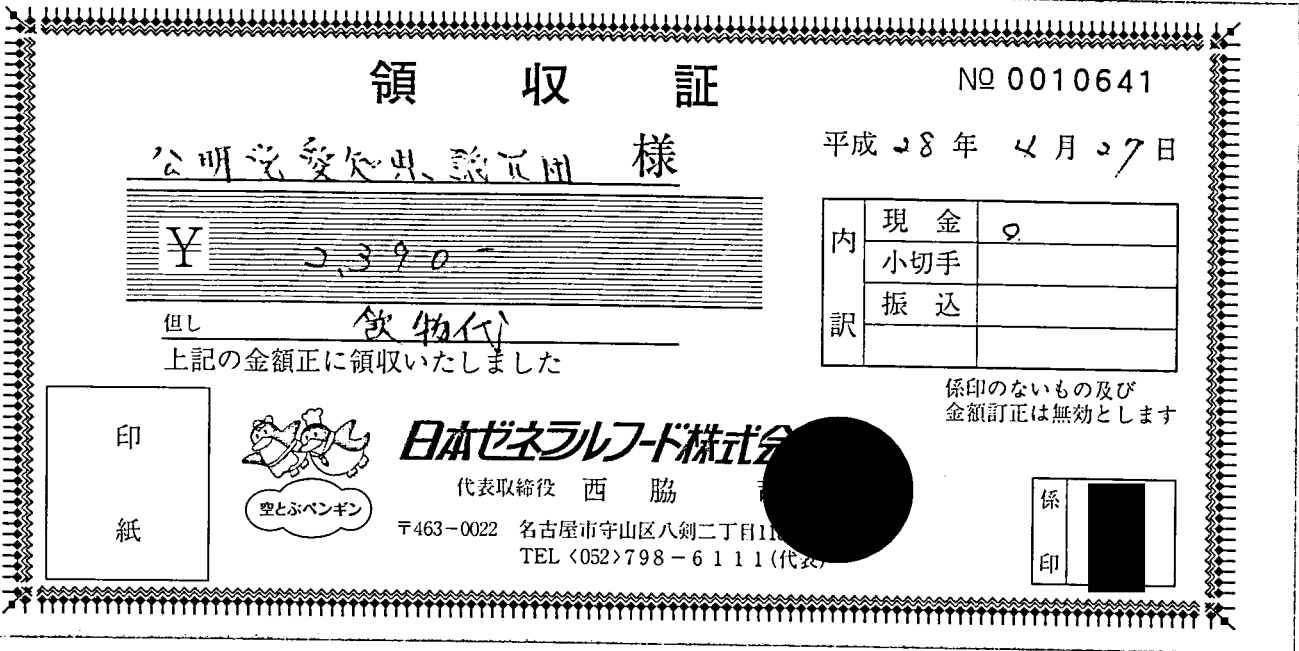 領収証
№ 0010641
公明党愛知県議員団 様
平成 28 年 4 月 27 日
¥ 2,390-
内訳
現金 o
小切手
振込
但し 飲物代
上記の金額正に領収いたしました
係印のないもの及び
金額訂正は無効とします
印紙
空とぶペンギン
日本ゼネラルフード株式会
代表取締役 西脇
〒463-0022 名古屋市守山区八剣二丁目11
TEL <052>798-6111(代表)
係印